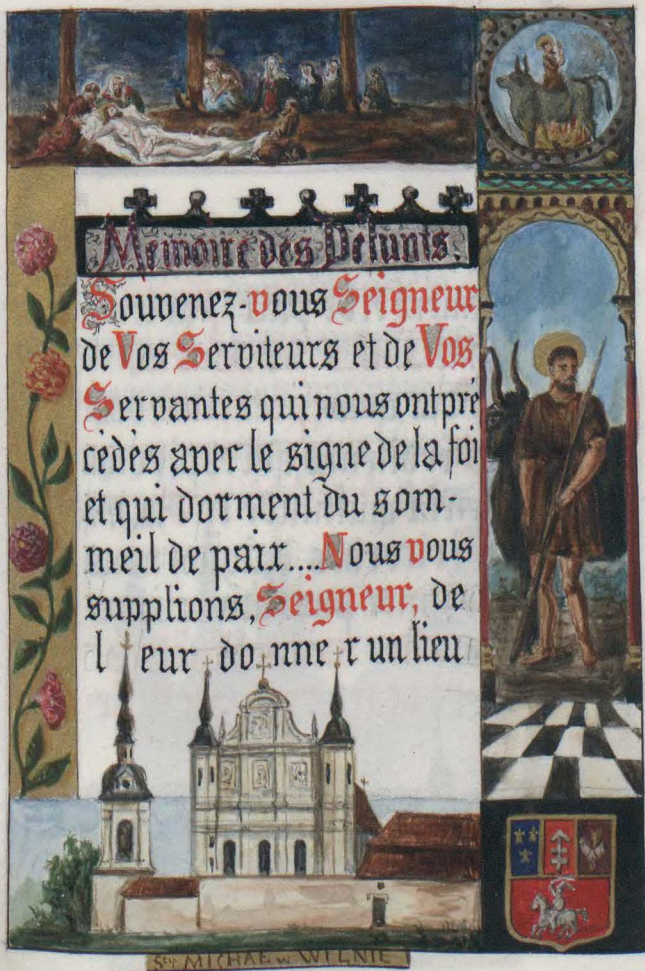 Mémoire des Défunts.
Souvenez-vous Seigneur
de Vos Serviteurs et de Vos
Servantes qui nous ont pré
cédés avec le signe de la foi
et qui dorment du som-
meil de paix.... Nous vous
supplions, Seigneur, de
l eur do nne r un lieu
Sty MICHAŁ w WILNIE